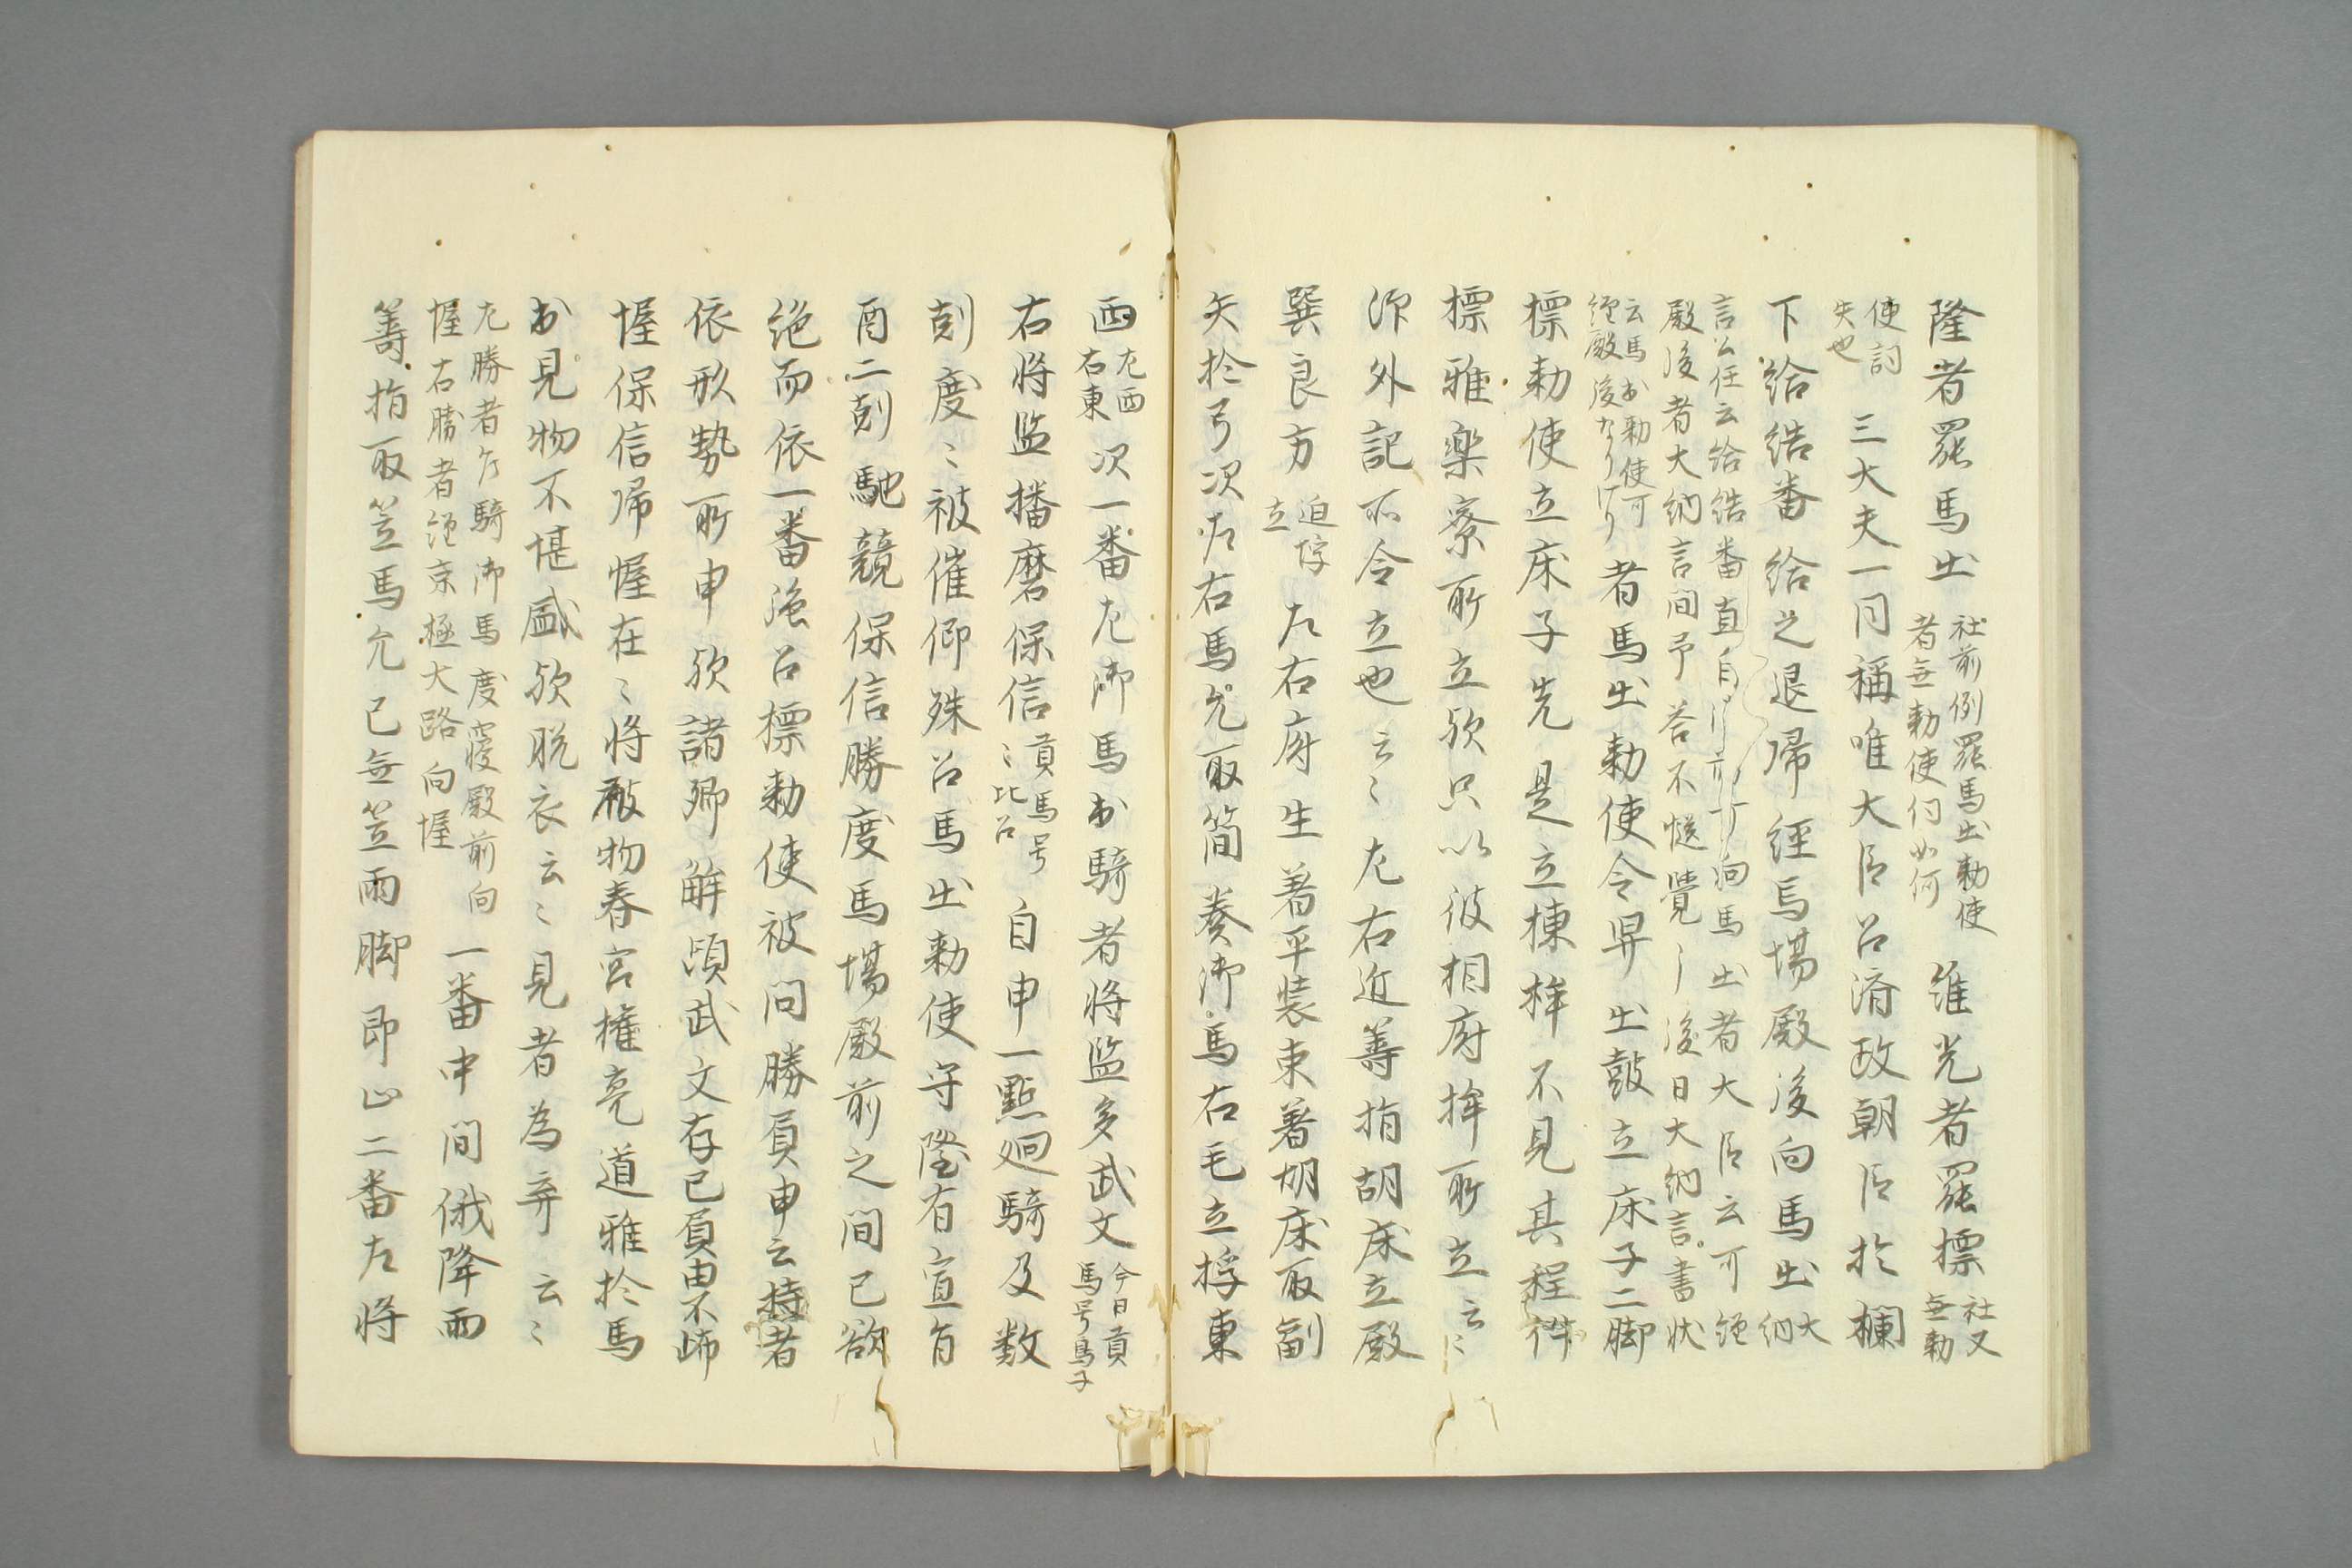 隆者罷馬出社前例罷馬出勅使者無勅使何如何 維光者罷標社又無勅
使詞失也 三大夫一同稱唯大臣召済政朝臣於欄
下給結番給之退帰経馬場殿後向馬出大納
言公任云給結番直自 向馬出者大臣云可経
殿後者大納言間予答不慥覚之後日大納言書状
云馬出勅使可経殿後なりけり 者馬出勅使令舁出鼓立床子二脚
標勅使立床子先是立棟桙不見其程件
標雅楽寮所立歟只以彼相府桙所立云々
作外記不令立也云々左右近籌指胡床立殿
巽艮方迫埒立 左右府生着平装束着胡床取副
矢於弓次左右馬允取簡奏御馬右毛立埒東
西左西右東 次一番左御馬出騎者将監多武文今日貢馬号鳥子
右将監播磨保信貢馬号々比呂 自申一點廻騎及数
剋度々被催仰殊召馬出勅使守隆有宣旨
酉二剋馳競保信勝度馬場殿前之間已欲
絶而依一番強召標勅使被問勝負申云持者
依形勢所申歟諸卿解頤武文存已負由不帰
幄保信帰幄在々将祿物春宮権亮道雅於馬
出見物不堪感歟脱衣云々見者為弃云々
左勝者乍騎御馬度寝殿前向幄右勝者経京極大路向幄 一番中間俄降雨
籌指取笠馬允已無笠雨脚即止二番左将